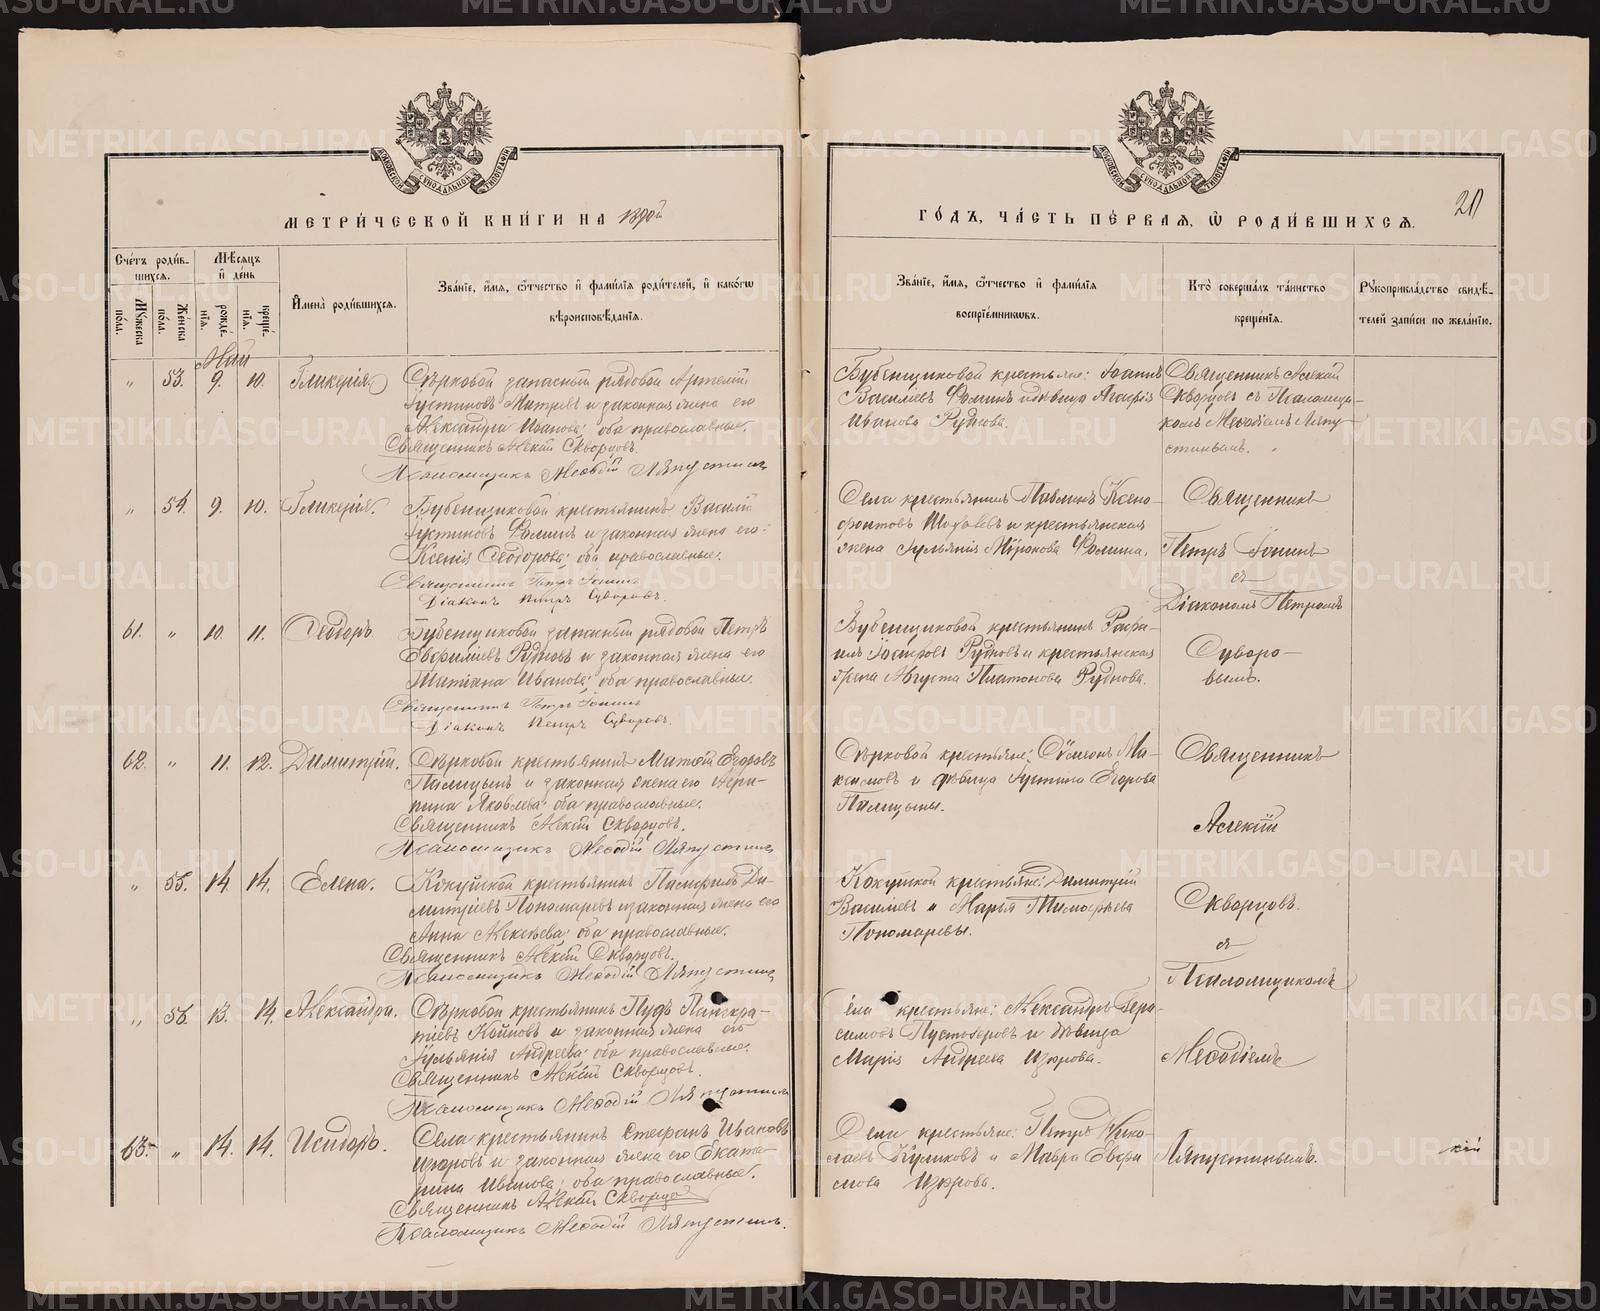 МЕТРИ́ЧЕСКОЙ КНИ́ГИ НА 1890й
Сче́тъ роди́в-
шихся.
Мѣ́сяцъ
и де́нь
Мꙋ́жеска
по́ла.
Же́нска
по́ла.
рожде́-
нїя.
креще́-
нїя.
И҆мена̀ роди́вшихся.
Зва́нїе, и҆́мя, ѻ҆́тчество и҆ фами́лїя роди́телей, и҆ како́гѡ
вѣроисповѣ́данїя.
Май
" 53. 9. 10. Гликерія.
Озерковой запасный рядовой Артемій
Іустиновъ Митревъ и законная жена его
Александра Иванова; оба православные.
Священникъ Алексій Скворцовъ.
Псаломщикъ Меѳодій Ляпустинъ
" 54. 9. 10. Гликерія.
Бубенщиковой крестьянинъ Василій
Іустиновъ Ѳоминъ и законная жена его:
Ксенія Ѳеодорова; оба православные.
Священникъ Петръ Іонинъ
Діаконъ Петръ Суворовъ.
61. " 10. 11. Ѳеодоръ.
Бубенщиковой запасный рядовой Петръ
Евфиміевъ Рудновъ и законная жена его
Татіана Иванова; оба православные.
Священникъ Петръ Іонинъ
Діаконъ Петръ Суворовъ.
62. " 11. 12. Димитрій.
Озерковой крестьянинъ Матѳій Егоровъ
Палицынъ и законная жена его Агри-
пина Яковлева; оба православные.
Священникъ Алексій Скворцовъ.
Псаломщикъ Меѳодій Ляпустинъ
" 55. 14. 14. Елена.
Кокуйской крестьянинъ Памфилъ Ди-
митріевъ Пономаревъ и законная жена его
Анна Алексѣева; оба православные.
Священникъ Алексій Скворцовъ.
Псаломщикъ Меѳодій Ляпустинъ
" 56. 13. 14. Александра.
Озерковой крестьянинъ Пудъ Панкра-
тіевъ и законная жена его
Іульянія Андреева; оба православные.
Священникъ Алексій Скворцовъ.
Псаломщикъ Меѳодій Ляпустинъ
63. " 14. 14. Исидоръ.
Села крестьянинъ Стефанъ Ивановъ
Изюровъ и законная жена его Екате-
рина Иванова; оба православные.
Священникъ Алексій Скворцовъ
Псаломщикъ Меѳодій Ляпустинъ.
20
ГО́ДЪ, ЧА́СТЬ ПЕ́РВАЯ, Ѡ҆ РОДИ́ВШИХСЯ.
Зва́нїе, и҆́мя, ѻ҆́тчество и҆ фами́лїя
воспрїе́мникѡвъ.
Кто̀ соверша́лъ та́инство
креще́нїя.
Рꙋкоприкла́дство свидѣ́-
телей за́писи по жела́нїю.
Бубенщиковой крестьяне: Іоаннъ
Васильевъ Ѳоминъ и дѣвица Агафія
Иванова Руднова.
Священникъ Алексій
Скворцовъ съ Псаломщи-
комъ Меѳодіемъ Ляпу-
стинымъ.
Села крестьянинъ Павлинъ Ксено-
фонтовъ и крестьянская
жена Іульянія Ѳомина.
Священникъ
Петръ Іонинъ
съ
Діакономъ Петромъ
Бубенщиковой крестьянинъ Рафа-
илъ Іосифовъ Рудновъ и крестьянская
жена Августа Платонова Руднова.
Суворо-
вымъ.
Озерковой крестьяне: Сѵмеонъ Ма-
ксимовъ и дѣвица Іустина Егорова
Палицыны.
Священникъ
Алексій
Кокуйской крестьяне: Димитрій
Василіевъ и Марья Тимоѳѣева
Пономаревы.
Скворцовъ.
съ
Псаломщикомъ
Села крестьяне: Александръ Гера-
симовъ Пустоваровъ и дѣвица
Марія Андреева Изюрова.
Меѳодіемъ
Села крестьяне: Петръ Нико-
лаевъ Куликовъ и Мавра Евфи
мова Изюрова.
Ляпустинымъ.
кій